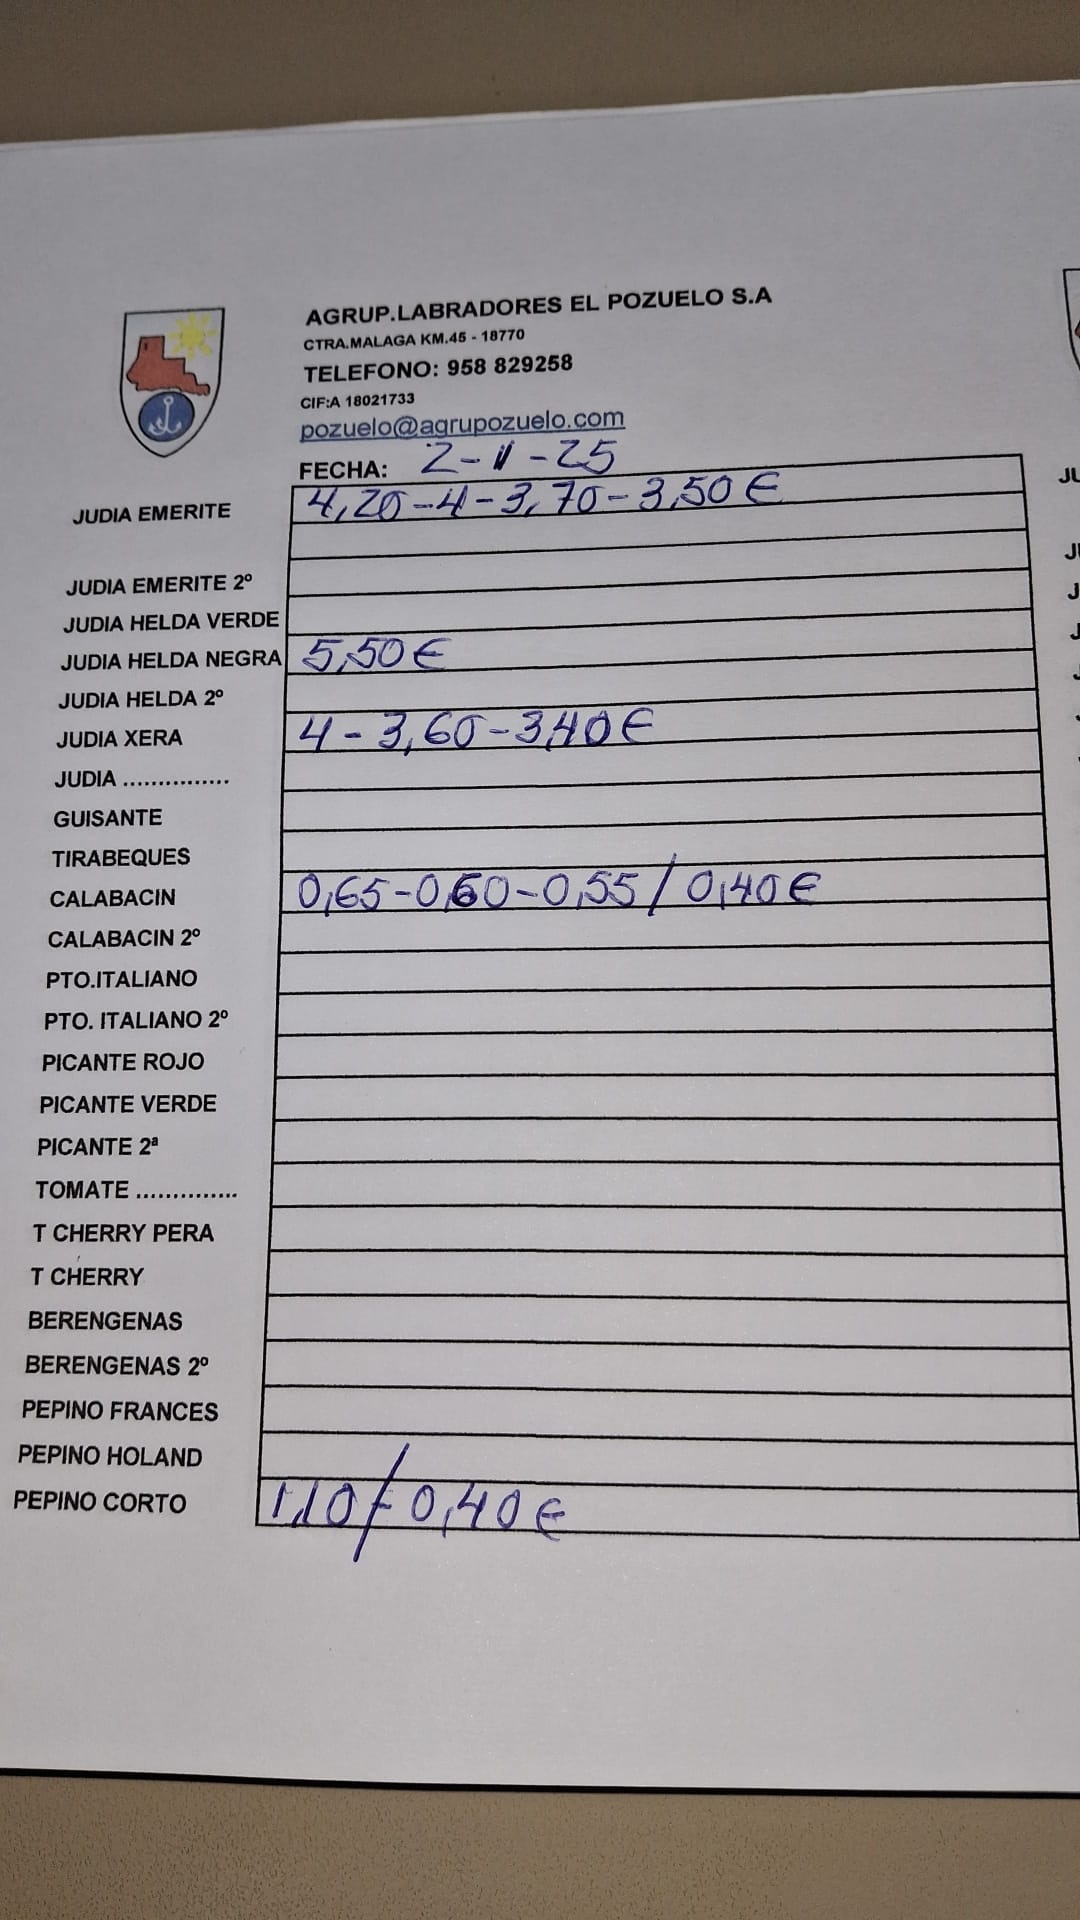 AGRUP.LABRADORES EL POZUELO S.A
CTRA.MALAGA KM.45 - 18770
TELEFONO: 958 829258
CIF:A 18021733
pozuelo@agrupozuelo.com
FECHA: 2-11-25
JUDIA EMERITE 4,20-4-3,70-3,50€
JUDIA EMERITE 2º
JUDIA HELDA VERDE
JUDIA HELDA NEGRA 5,50€
JUDIA HELDA 2º
JUDIA XERA 4-3,60-3,40€
JUDIA ...............
GUISANTE
TIRABEQUES
CALABACIN 0,65-0,60-0,55/0,40€
CALABACIN 2º
PTO.ITALIANO
PTO. ITALIANO 2º
PICANTE ROJO
PICANTE VERDE
PICANTE 2ª
TOMATE ..............
T CHERRY PERA
T CHERRY
BERENGENAS
BERENGENAS 2º
PEPINO FRANCES
PEPINO HOLAND
PEPINO CORTO 1,10/-0,40€